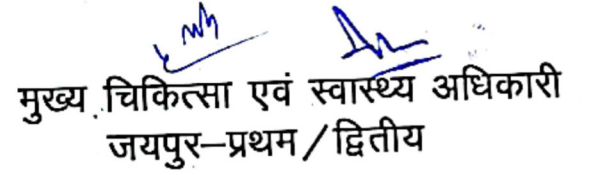 मुख्य चिकित्सा एवं स्वास्थ्य अधिकारी
जयपुर–प्रथम/द्वितीय